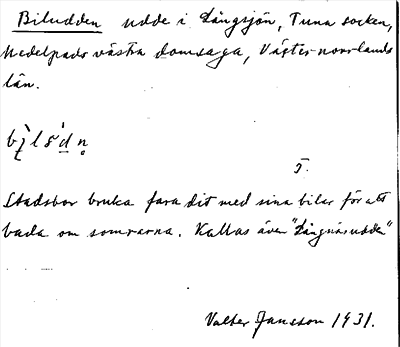 Biludden udde i Långsjön, Tuna socken,
Medelpads västra domsaga, Västernorrlands
län.
5.
Stadsbor bruka fara dit med sina bilar för att
bada om somrarna. Kallas även "Långnäsudden"
Valter Jansson 1931.